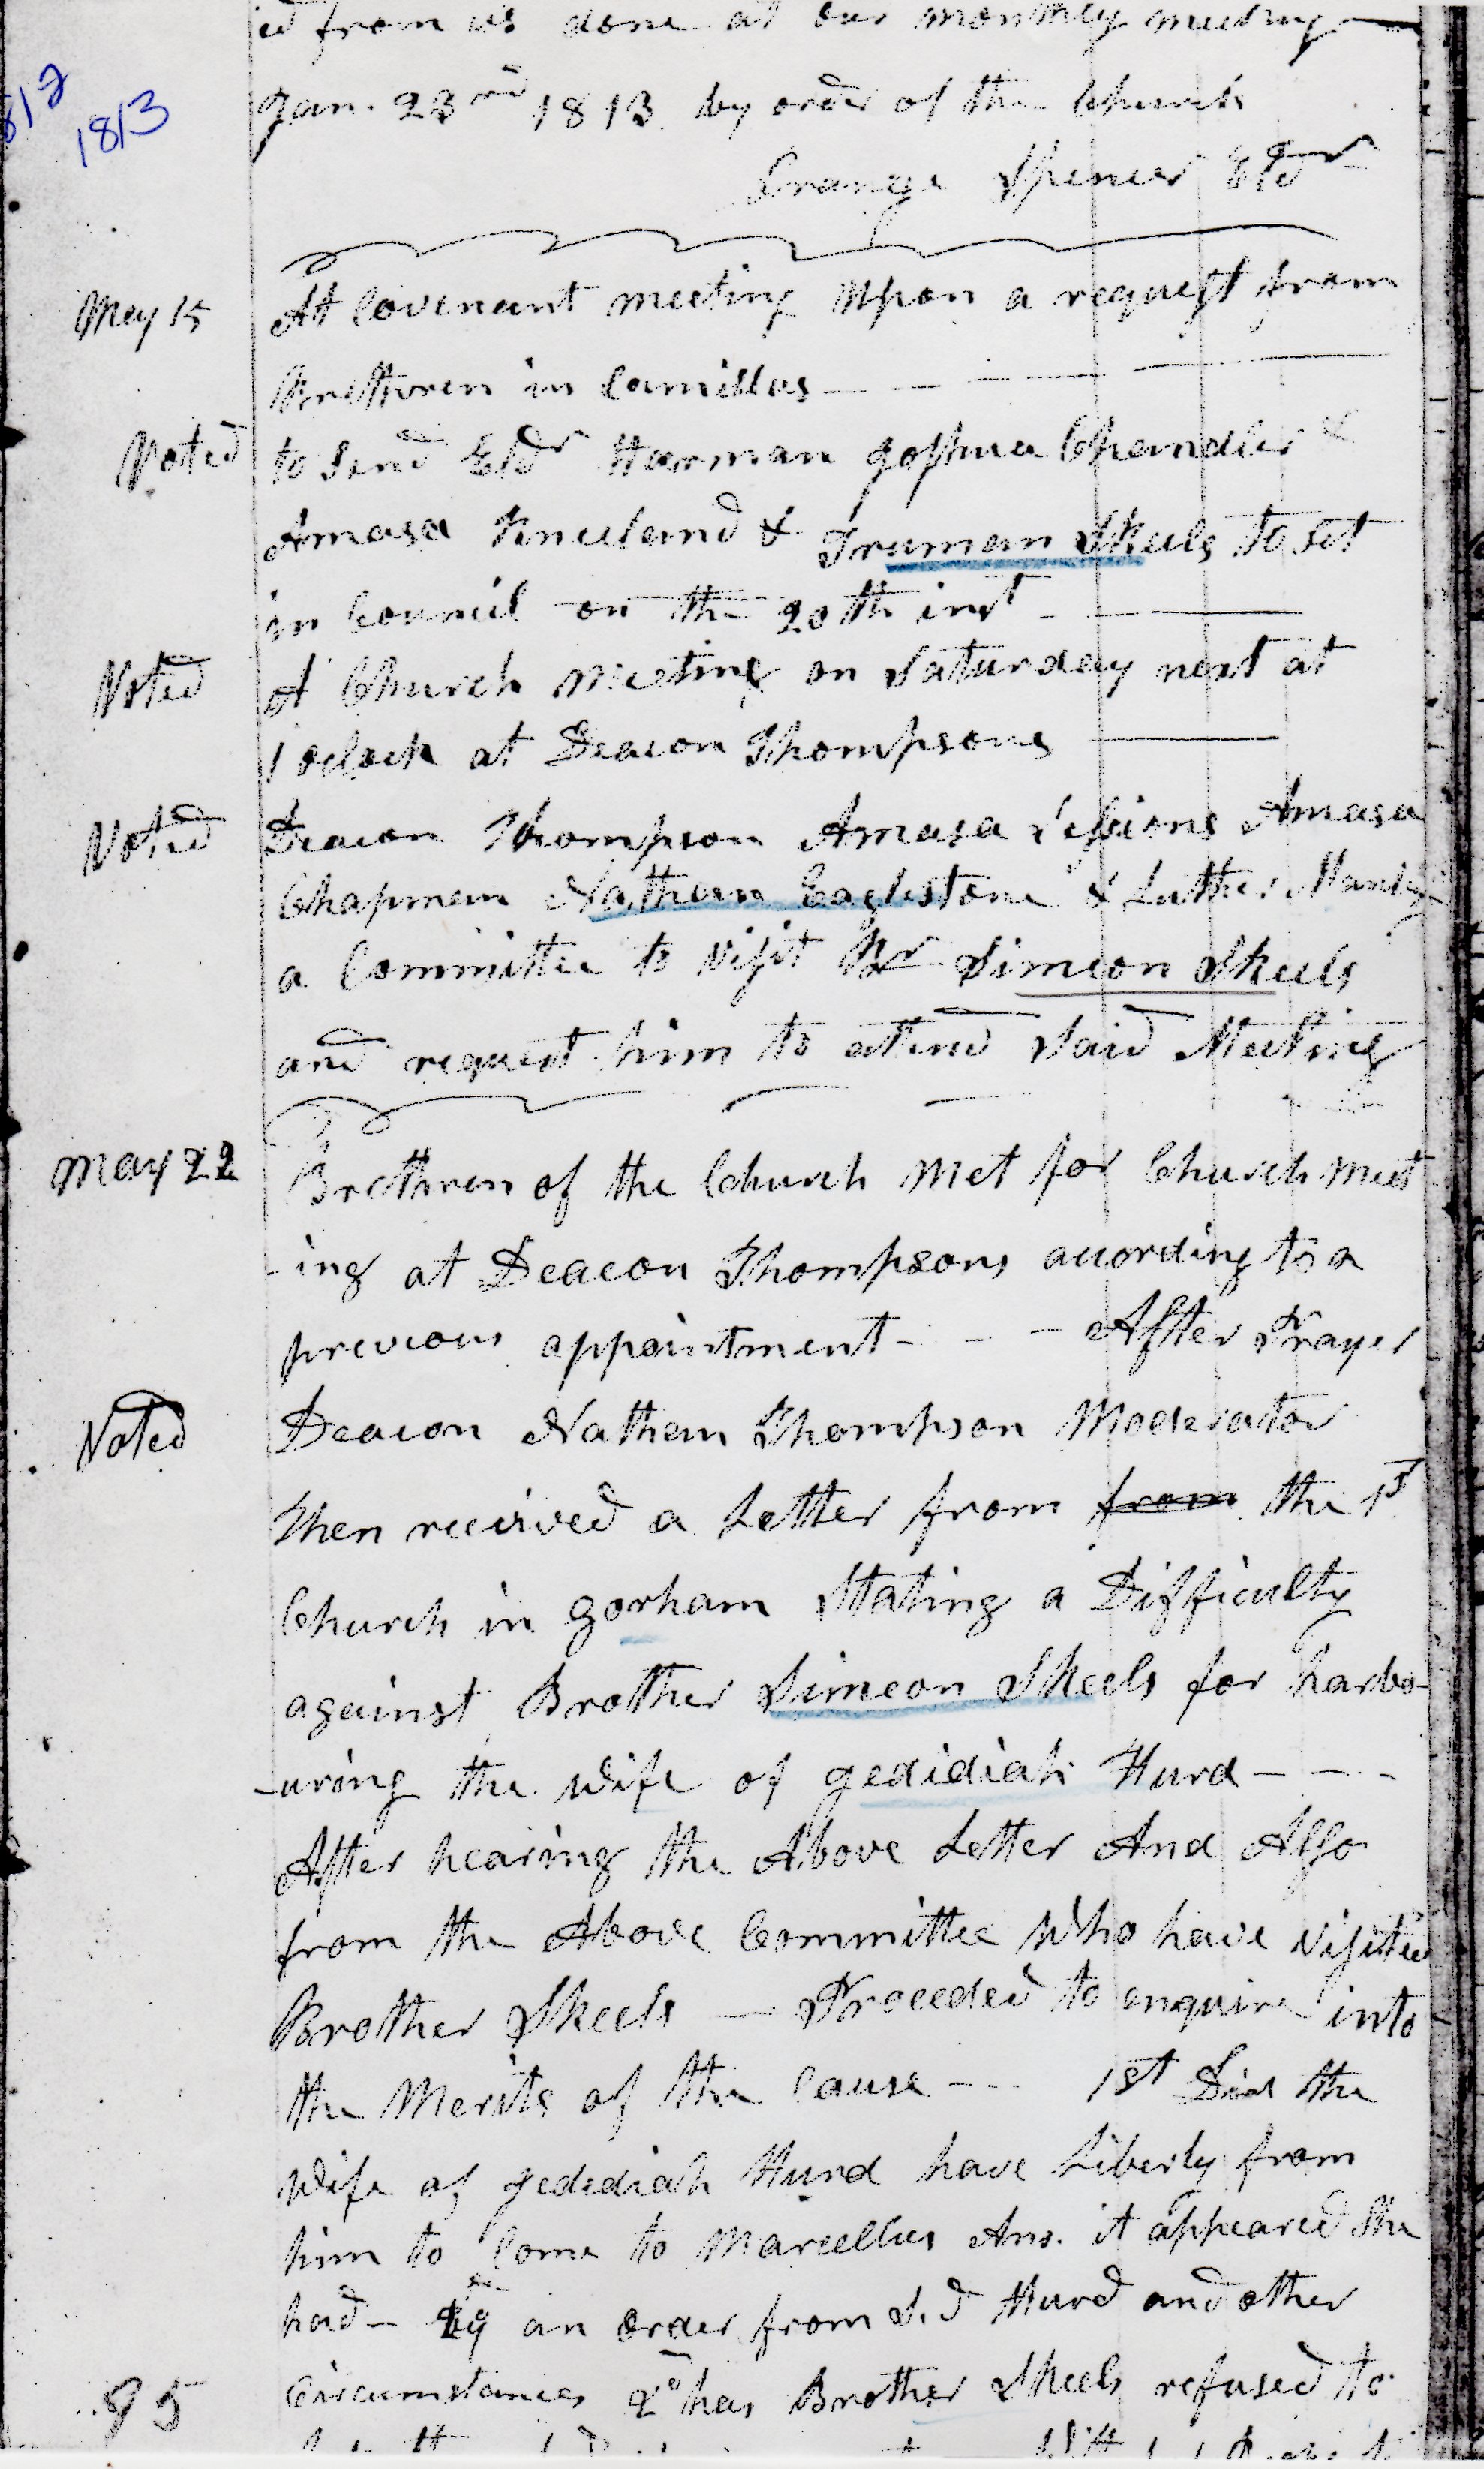 ed from us done at our monthly meeting
1813
Jan. 23rd 1813 by order of the Church
Orange Spencer Eldr
May 15 At Covenant meeting Upon a request from
Brethren in Camillus
Voted to Send Eldr Harman Joshua Chandler &
Amasa Kneeland & Truman Skeels to set
in Council on the 20th inst
Voted A Church Meeting on Saturday next at
1 oclock at Deacon Thompsons
Voted Deacon Thompson Amasa Sessions Amasa
Chapman Nathan Eaglestone & Luther Manley
a Committee to Visit Br Simeon Skeels
and request him to attend Said Meeting
May 22 Brethren of the Church Met for Church meet
-ing at Deacon Thompsons acording to a
previous appointment - - - After Prayer
Voted Deacon Nathan Thompson Moderator
Then received a Letter from from the 1st
Church in Gorham Stating a Difficulty
against Brother Simeon Skeels for harbo-
-uring the Wife of Jedidiah Hurd - - -
After hearing the Above Letter And Also
from the Above Committee Who have Visited
Brother Skeels — Proceeded to enquire into
the Merits of the Cause - - - 1st Did the
Wife of Jedediah Hurd have Liberty from
him to Come to Marcellus Ans. it appeared She
had - by an order from S.d Hurd and other
Circumstances 2d has Brother Skeels refused to
95